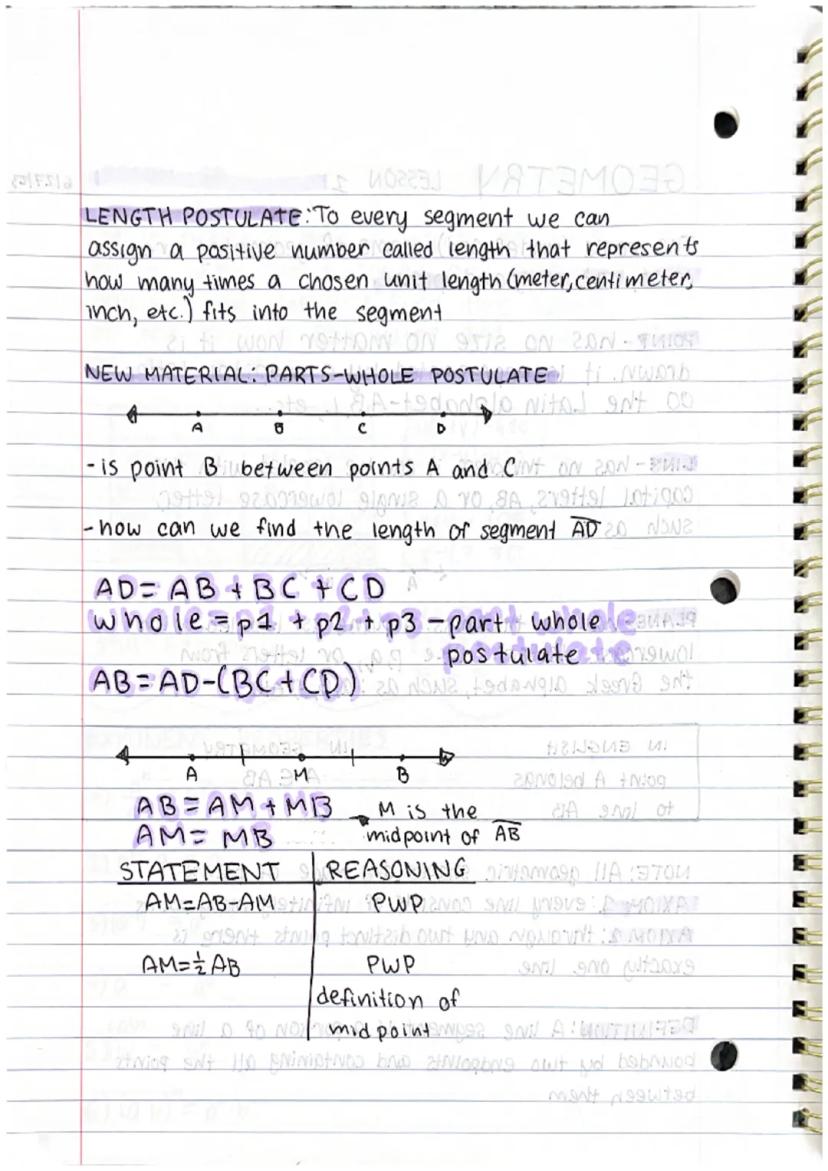 LENGTH POSTULATE: To every segment we can
assign a positive number called length that represents
how many times a chosen unit length (meter, centimeter,
inch, etc.) fits into the segment
NEW MATERIAL: PARTS-WHOLE POSTULATE
A B C D
- is point B between points A and C
- how can we find the length of segment AD
AD = AB + BC + CD
whole = p1 + p2 + p3 - part whole
postulate
AB = AD - (BC + CD)
A M B
AB = AM + MB
M is the
AM = MB
midpoint of AB
STATEMENT REASONING
AM = AB - AM PWP
AM = ½ AB PWP
definition of
midpoint